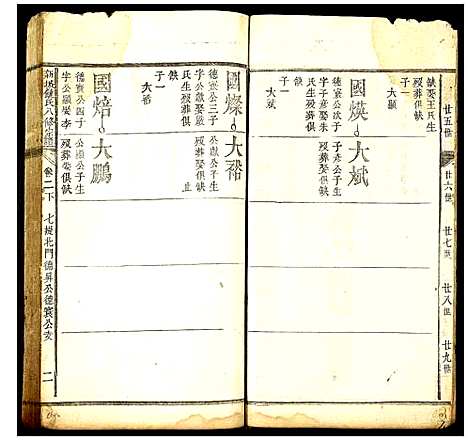 廿五世
廿六世
廿七世
廿八世
廿九世
缺娶王氏生
歿葬俱缺
子一
大顯
國煐
德寰公次子
字子彥娶朱
氏生歿葬俱
缺
子一
大斌
大斌
子彥公子生
歿葬娶俱缺
國燦
德寰公三子
字公獻娶嚴
氏生歿葬俱
缺
子一
大㵢
公獻公子生
歿葬娶俱缺
止
國焙
德寰公四子
字公顯娶李
大鵬
公操公子生
歿葬娶俱缺
氏八修宗譜
卷二下
七提北門德昇公德寰公支
二